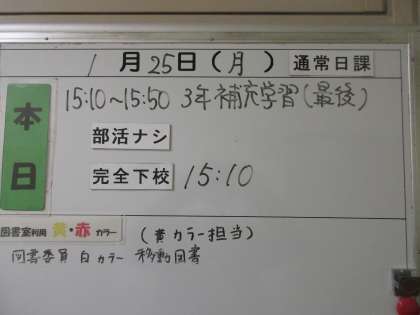 1月25日(月) 通常日課
本日
15:10~15:50 3年補充学習(最後)
部活ナシ
完全下校 15:10
図書室利用 黄・赤カラー (黄カラー担当)
図書委員 白カラー 移動図書